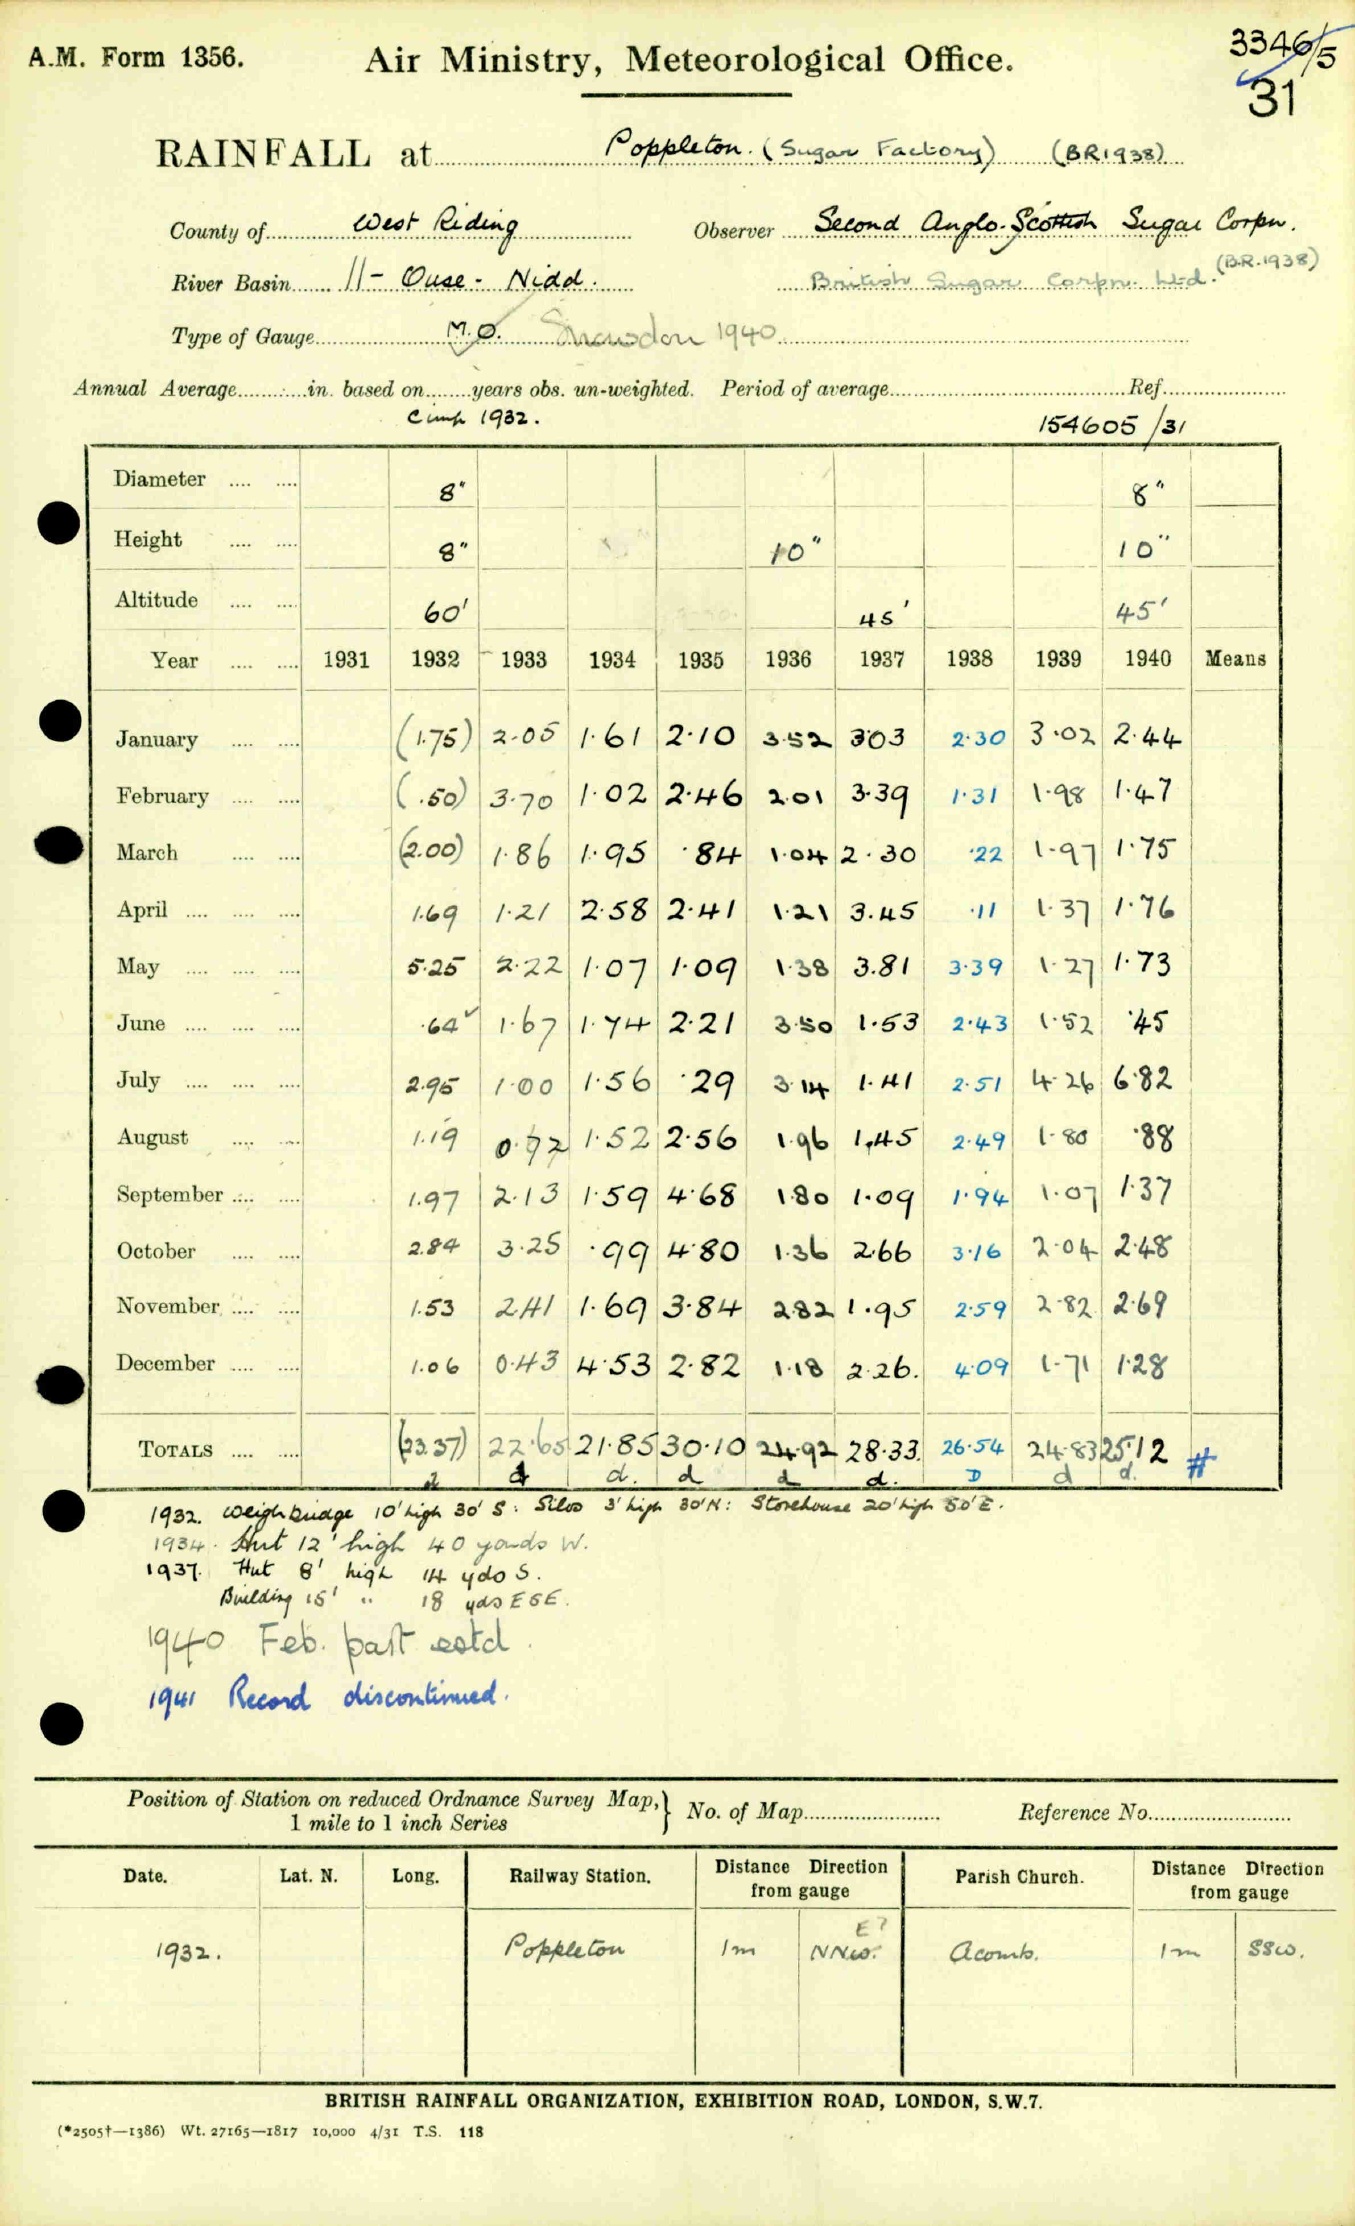 A.M. Form 1356.
Air Ministry, Meteorological Office.
3346/5
31
RAINFALL at Poppleton. (Sugar Factory) (BR1938)
County of West Riding Observer Second Anglo-Scottish Sugar Corpn.
River Basin 11- Ouse - Nidd. British Sugar Corpn. Ltd. (B.R.1938)
Type of Gauge M.O. Snowdon 1940
Annual Average in. based on years obs. un-weighted. Period of average Ref.
1932. 154605/31
Diameter 8" 8"
Height 8" 10" 10"
Altitude 60' 45' 45'
Year 1931 1932 1933 1934 1935 1936 1937 1938 1939 1940 Means
January (1.75) 2.05 1.61 2.10 3.52 3.03 2.30 3.02 2.44
February (.50) 3.70 1.02 2.46 2.01 3.39 1.31 1.98 1.47
March (2.00) 1.86 1.95 .84 1.04 2.30 .22 1.97 1.75
April 1.69 1.21 2.58 2.41 1.21 3.45 .11 1.37 1.76
May 5.25 2.22 1.07 1.09 1.38 3.81 3.39 1.27 1.73
June .64 1.67 1.74 2.21 3.50 1.53 2.43 1.52 .45
July 2.95 1.00 1.56 .29 3.14 1.41 2.51 4.26 6.82
August 1.19 0.72 1.52 2.56 1.96 1.45 2.49 1.80 .88
September 1.97 2.13 1.59 4.68 1.80 1.09 1.94 1.07 1.37
October 2.84 3.25 .99 4.80 1.36 2.66 3.16 2.04 2.48
November 1.53 2.41 1.69 3.84 2.82 1.95 2.59 2.82 2.69
December 1.06 0.43 4.53 2.82 1.18 2.26. 4.09 1.71 1.28
TOTALS (23.37) 22.65 21.85 30.10 24.92 28.33. 26.54 24.83 25.12 #
d d d. d d d. D d d.
1932. Weighbridge 10' high 30' S: Silos 3' high 30' N: Storehouse 20' high 50' E.
1934. Hut 12' high 40 yards W.
1937. Hut 8' high 14 yds S.
Building 15' " 18 yds ESE.
1940 Feb. part estd.
1941 Record discontinued.
Position of Station on reduced Ordnance Survey Map, 1 mile to 1 inch Series } No. of Map Reference No.
Date. Lat. N. Long. Railway Station. Distance Direction from gauge Parish Church. Distance Direction from gauge
E?
1932. Poppleton 1m NNW. Acomb. 1m SSW.
BRITISH RAINFALL ORGANIZATION, EXHIBITION ROAD, LONDON, S.W.7.
(*2505†—1386) Wt. 27165—1817 10,000 4/31 T.S. 118